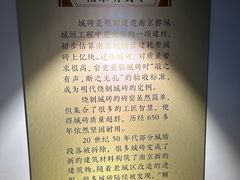 城砖是明初建造南京都城
城垣工程中最大宗的一项建材，
初步估算南京城墙曾建耗费城
砖上亿块。这些城砖，对质量要
求很高，官吏查验城砖时“敲之
有声，断之无孔”的验收标准，
成为明代烧制城砖的定例。
烧制城砖的砖窑虽然简单，
但集合了很多的工匠智慧，使
得城砖质量超群，历经 650 多
年依然坚固耐用。
20 世纪 50 年代部分城墙
段落被拆除，很多城砖变成了
新的建筑材料构筑了南京新的
建筑物。随着老城区改造的进